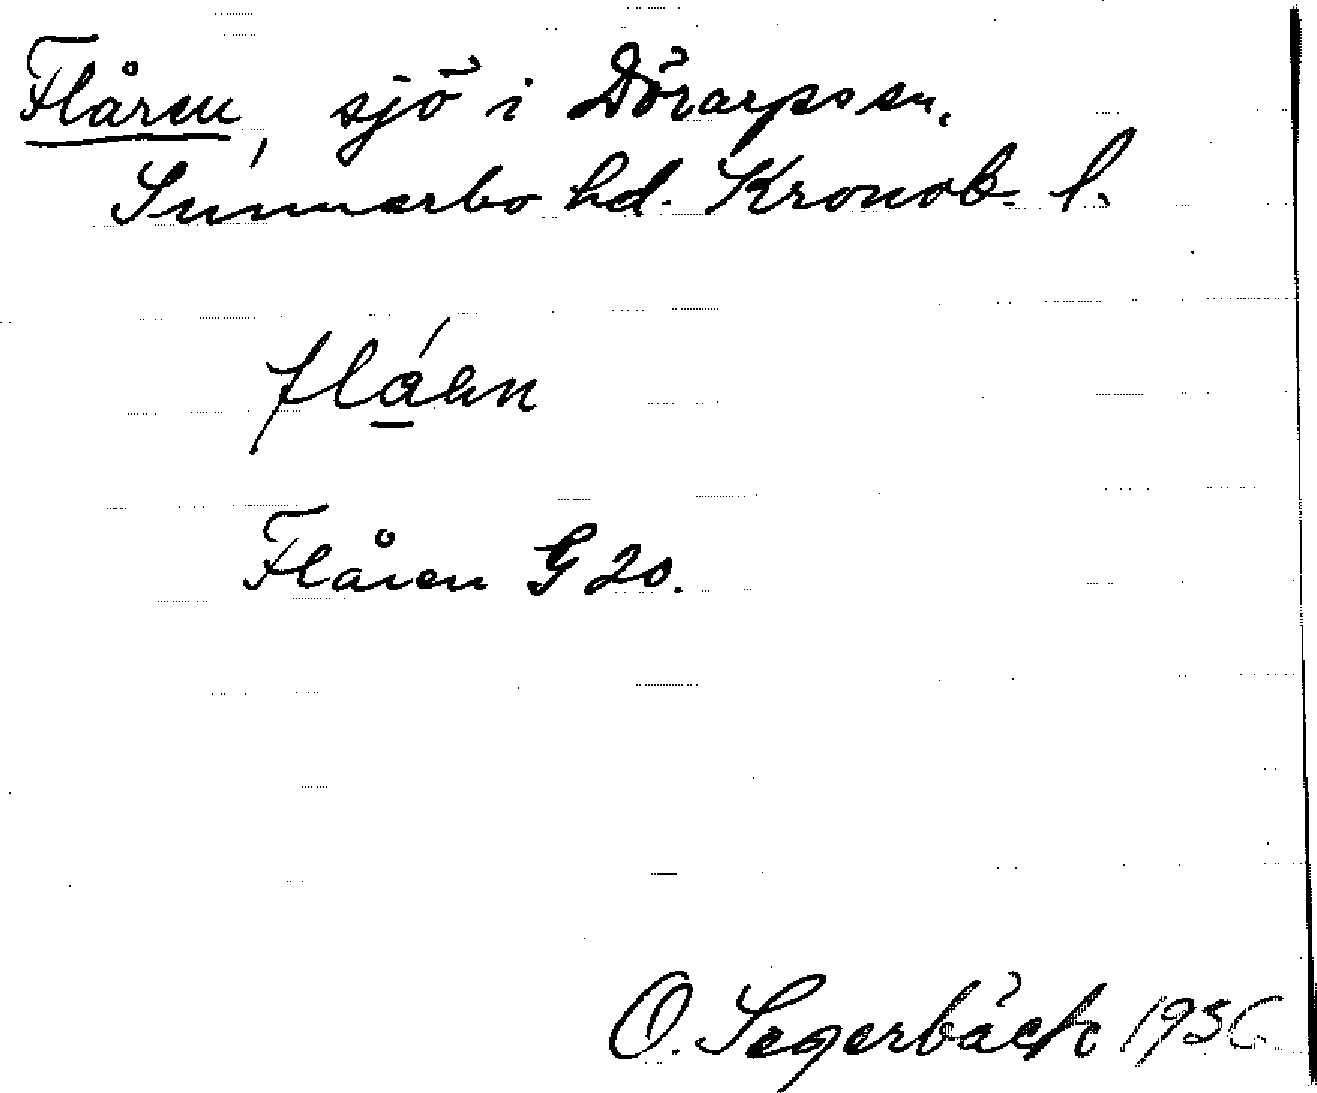 Flåren, sjö i Dörarps sn.
Sunnerbo hd. Kronob. l.
Flåren G 20.
O. Segerbäck 1936